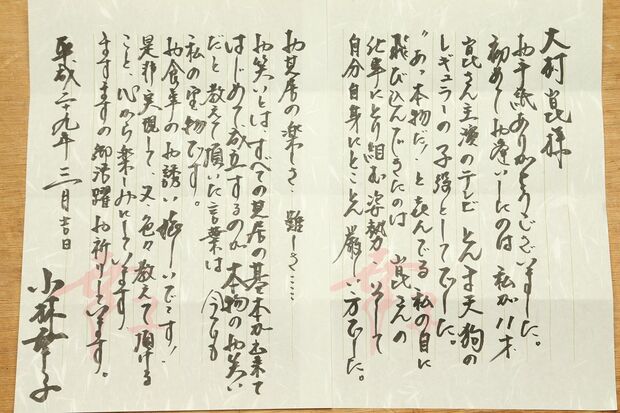 大村崑様
お手紙ありがとうございました。
初めてお逢いしたのは 私が11才
崑さん主演のテレビ とんま天狗の
レギュラーの子役としてでした。
“あっ本物だ!”と喜んでる私の目に
飛びこんできたのは 崑さんの
仕事にとり組む姿勢 そして
自分自身にとことん厳しい方でした。
お芝居の楽しさ、難しさ…
お笑いとは、すべての芝居の基本が出来て
はじめて成立するのが 本物のお笑い
だと教えて頂いた言葉は 今でも
私の宝物です。
お食事のお誘い嬉しいです!
是非実現して、又色々教えて頂ける
こと、心から楽しみにしています
ますますの御活躍お祈りしています。
平成二十九年三月吉日
小林幸子